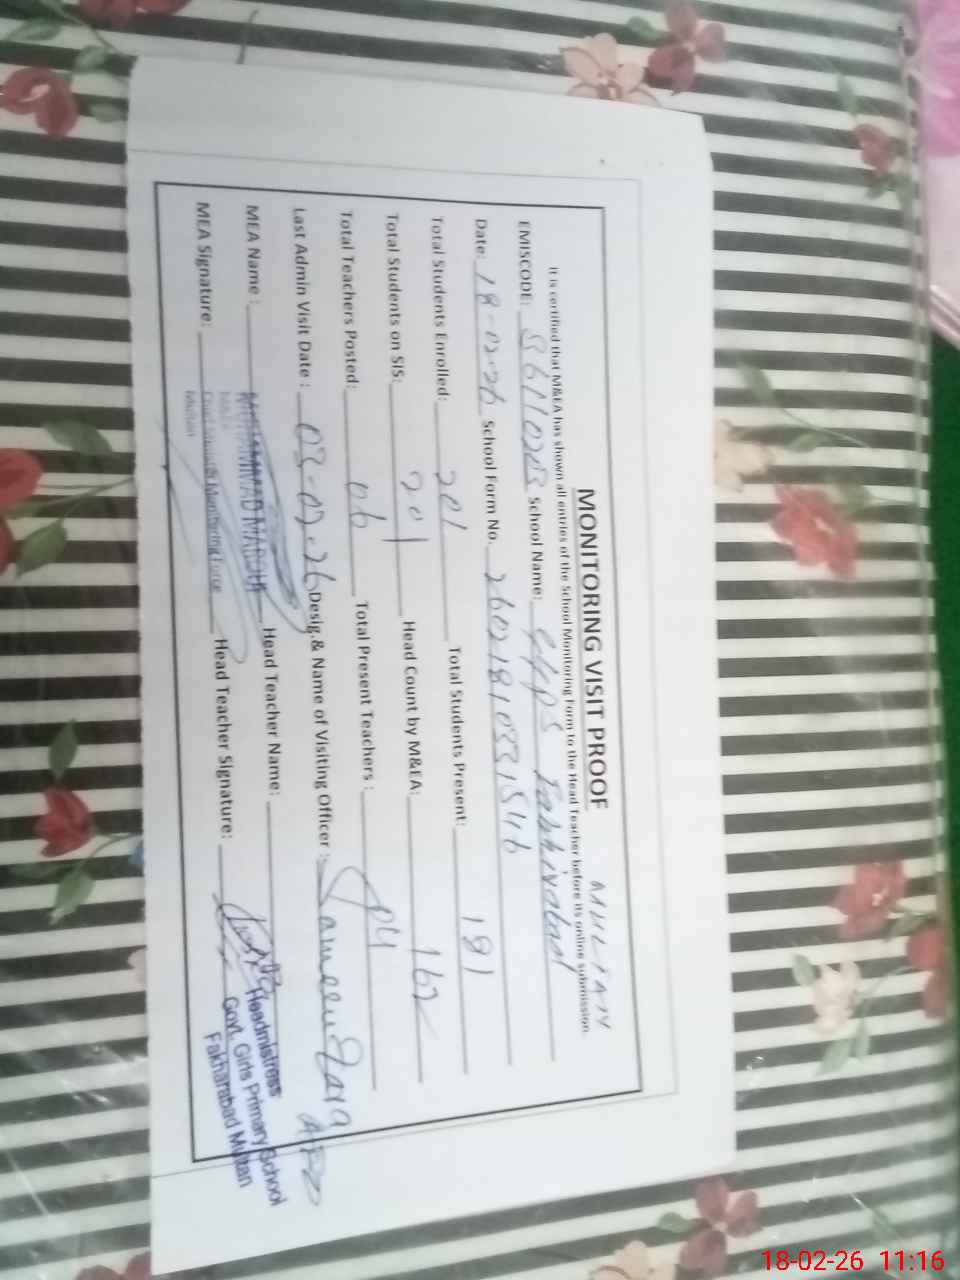 MONITORING VISIT PROOF
MULTAN
It is certified that M&EA has shown all entries of the School Monitoring Form to the Head Teacher before its online submission
EMISCODE: School Name: GGPS Fakhirabad
Date: 18-02-26 School Form No.
Total Students Enrolled: 201 Total Students Present: 181
Total Students on SIS: 201 Head Count by M&EA: 162
Total Teachers Posted: 06 Total Present Teachers : 04
Last Admin Visit Date : 03-02-26 Desig.& Name of Visiting Officer :
MEA Name : MUHAMMAD Head Teacher Name:
MEA Signature: Chief Minister Monitoring Force Head Teacher Signature:
Multan
Headmistress
Govt. Girls Primary School
Fakharabad Multan
18-02-26 11:16